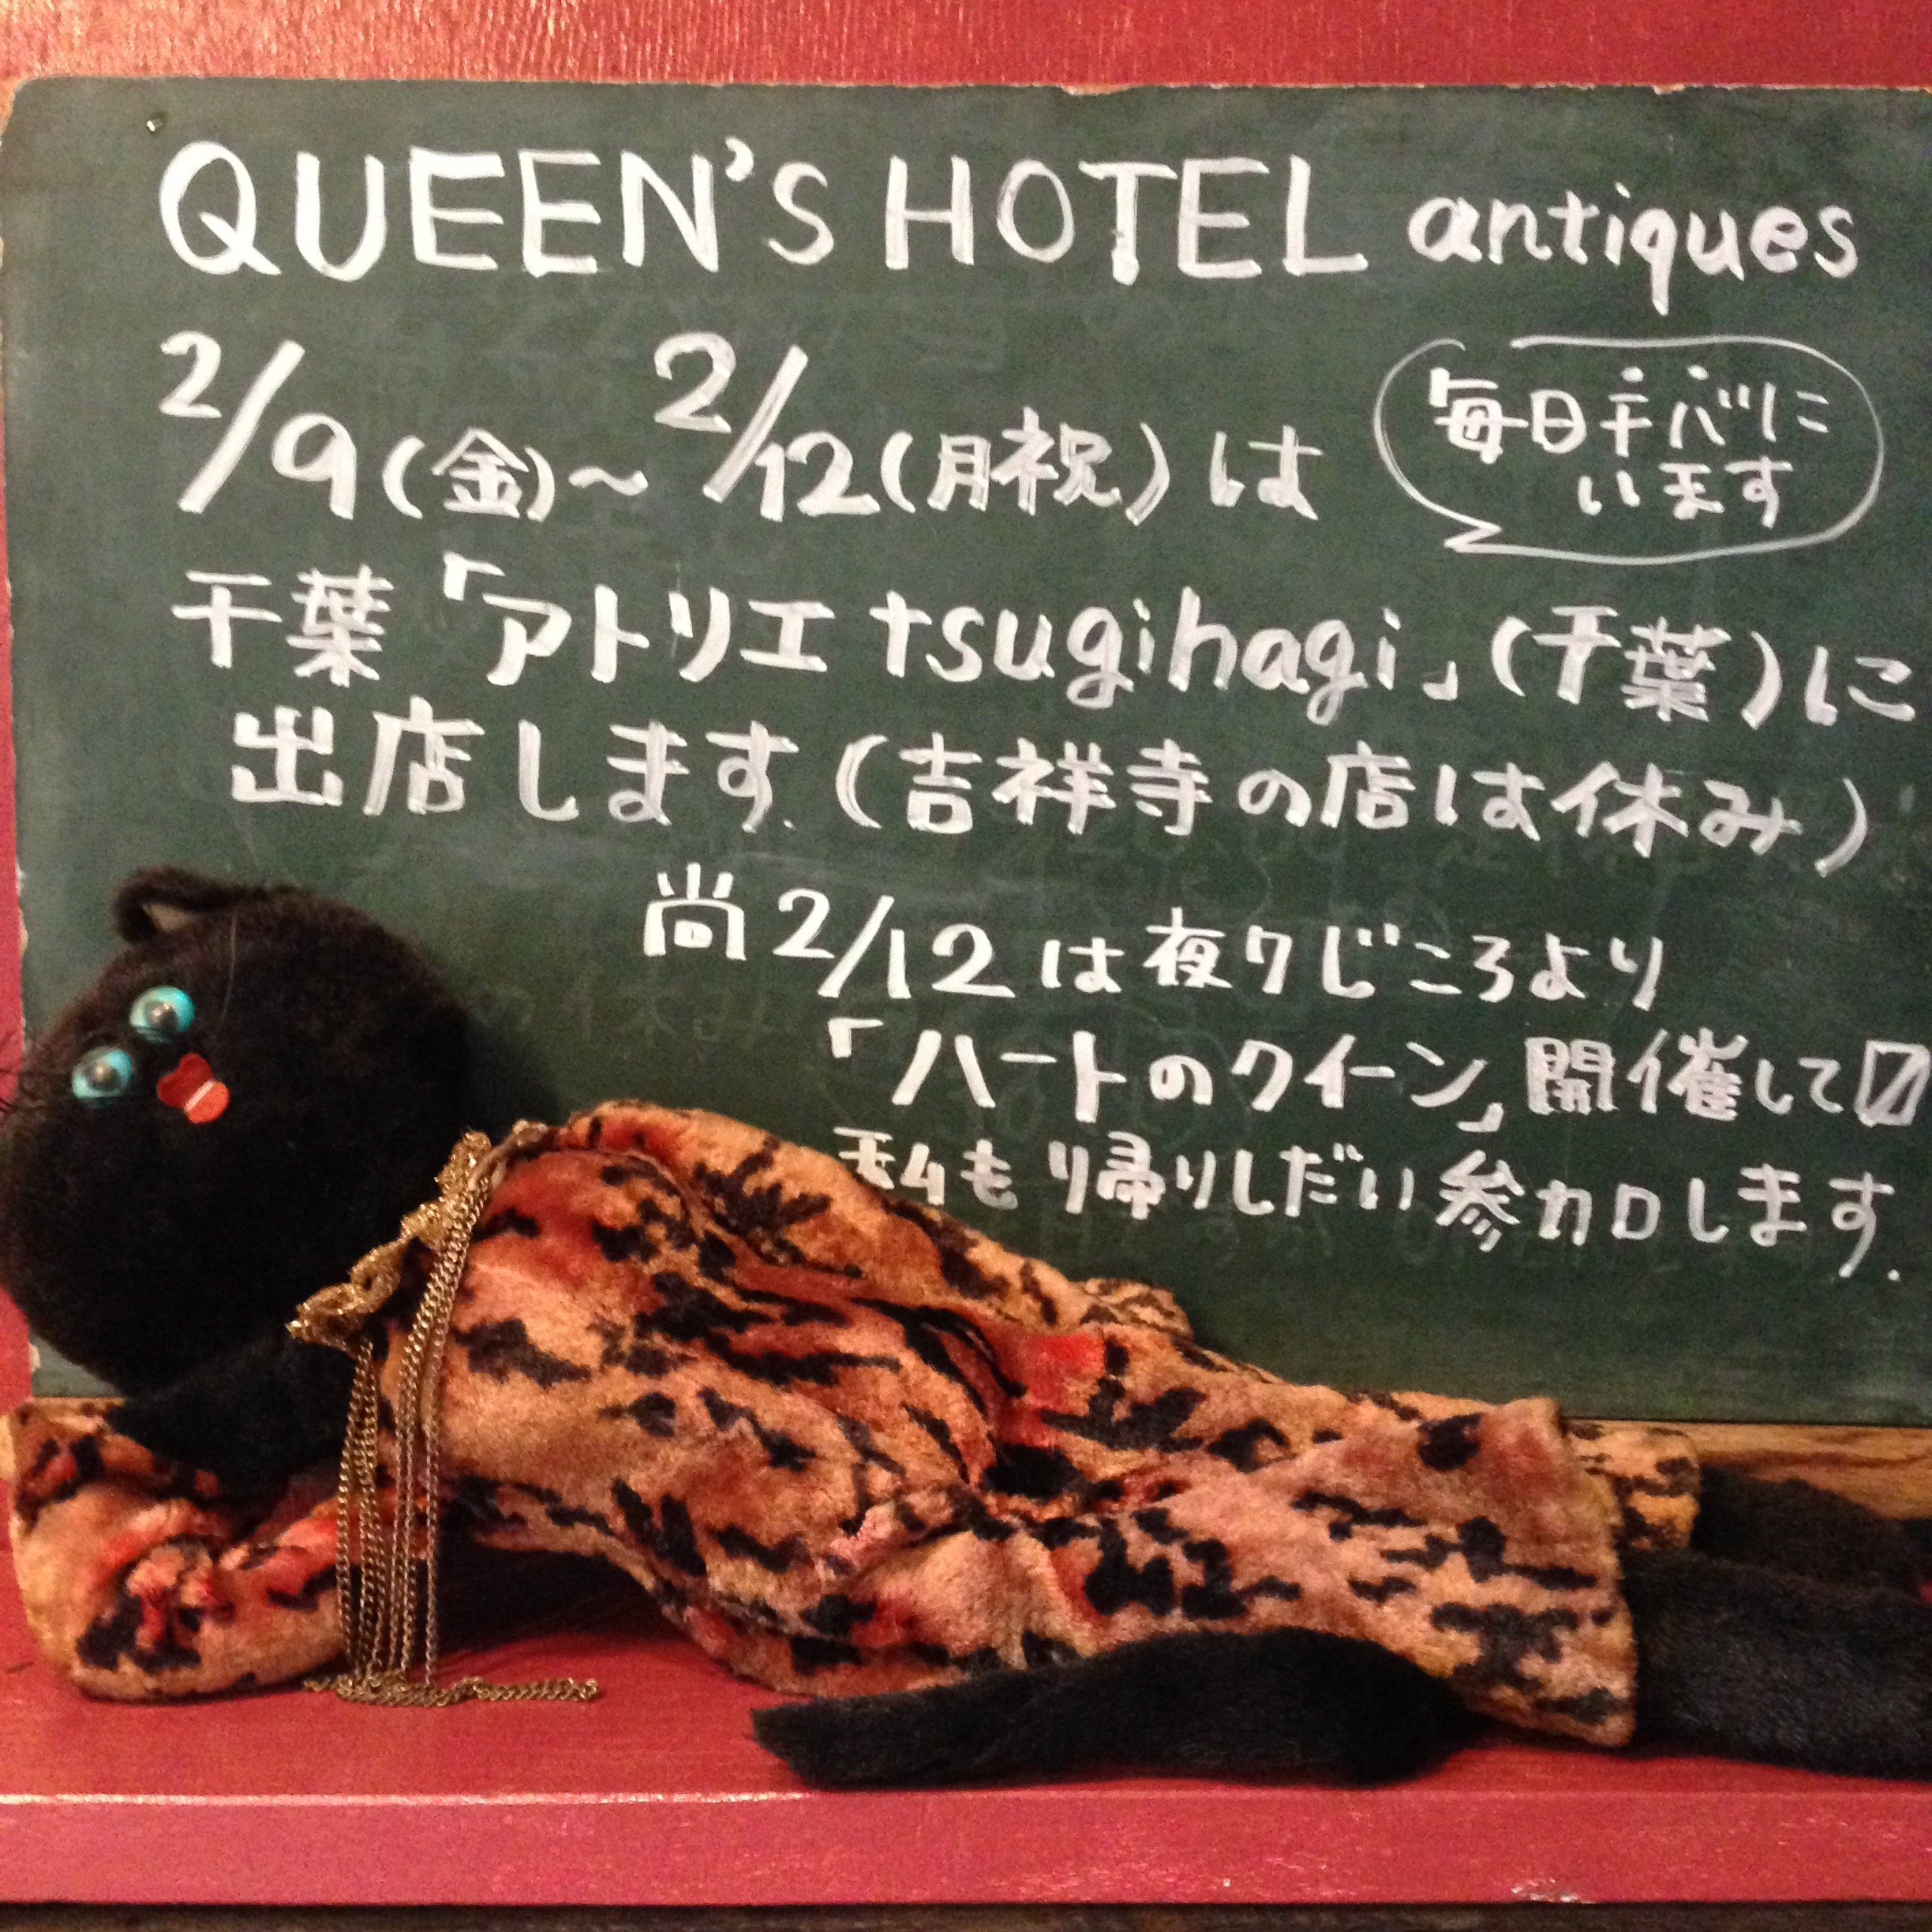 QUEEN'S HOTEL antiques
2/9(金)~2/12(月祝)は
毎日チバに
います
千葉「アトリエtsugihagi」(千葉)に
出店します.(吉祥寺の店は休み)
尚2/12は夜7じころより
「ハートのクイーン」開催して
私もり帰りしだい参加します.